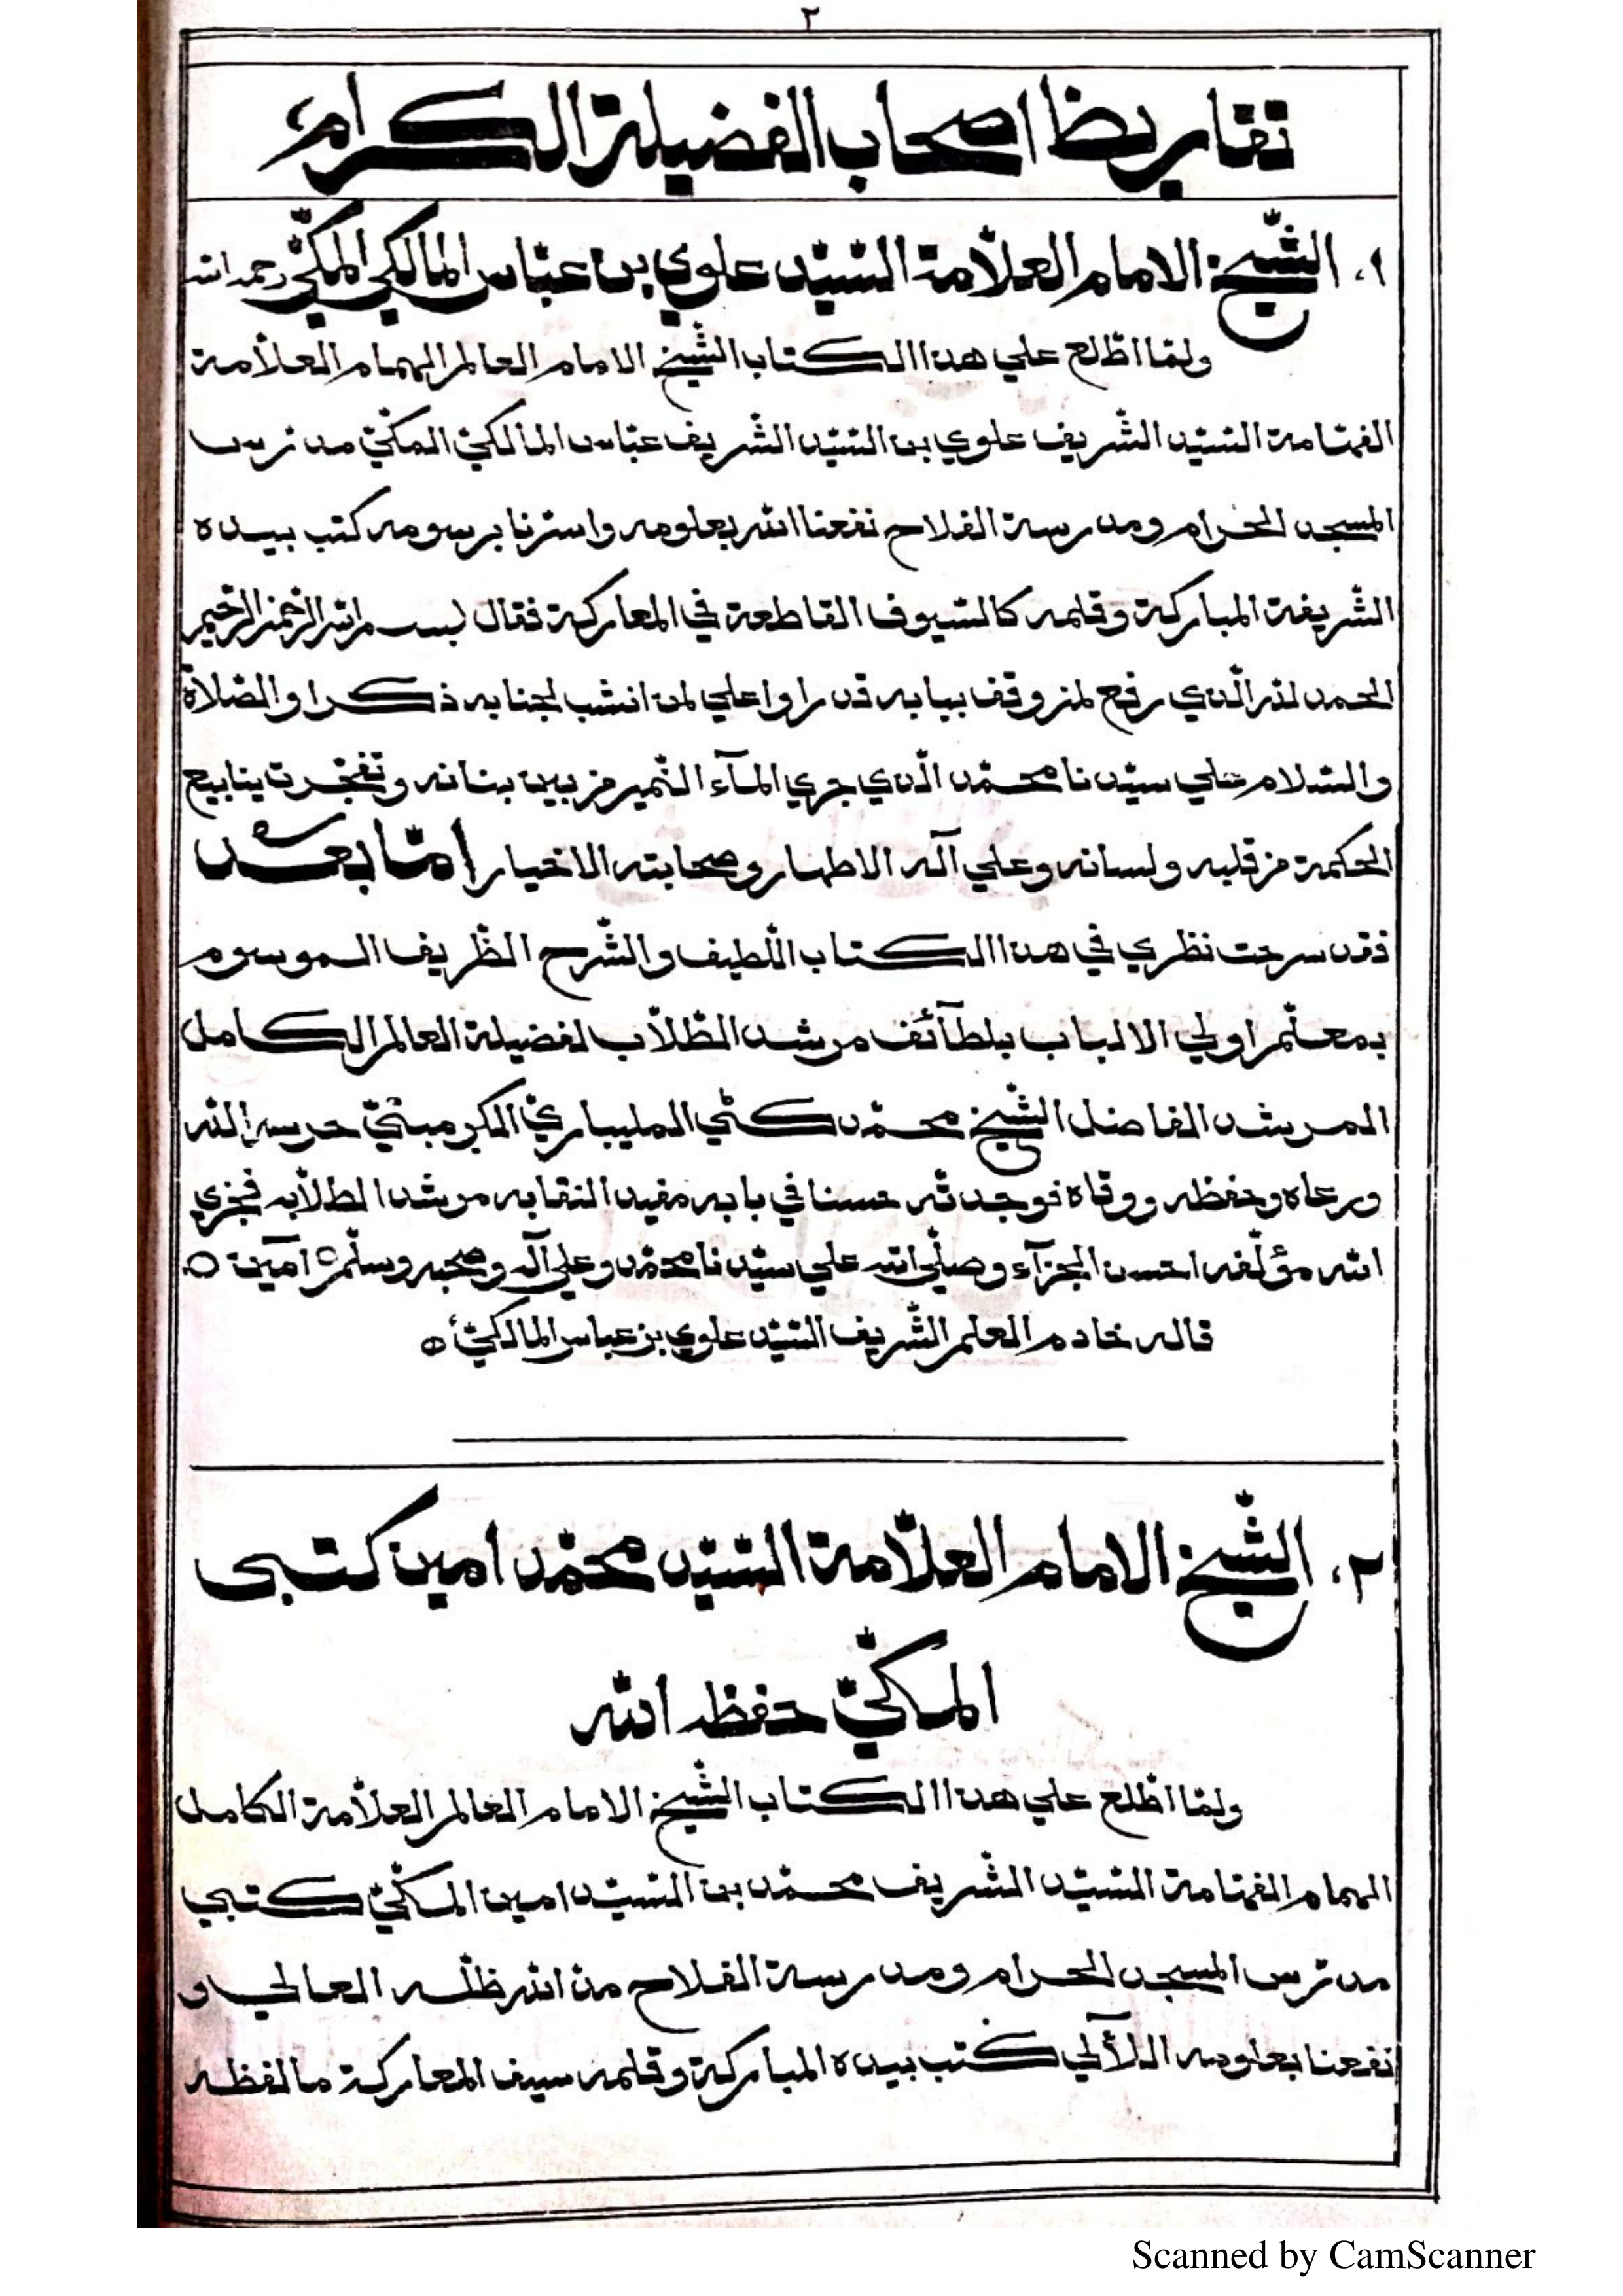 ٢
تقاريظ اصحاب الفضيلة الكرام
١. الشّيخ الامام العلّامة السّيّد علوي بن عبّاس المالكي المكّيّ رحمه الله
ولمّا اطّلع علي هذا الكتاب الشّيخ الامام العالم الهمام العلّامة
الفهّامة السّيّد الشّريف علوي بن السّيّد الشّريف عبّاس المالكيّ المكّيّ مدرّس
المسجد الحرام ومدرسة الفلاح نفعنا الله بعلومه واسرّنا برسومه كتب بيده
الشّريفة المباركة وقلمه كالسّيوف القاطعة في المعاركة فقال بسم الله الرّحمن الرّحيم
الحمد لله الّذي رفع لمن وقف ببابه قدرا واعلي لمن انتسب لجنابه ذكرا والصّلاة
والسّلام علي سيّدنا محمّد الّذي جري المآء النّمير من بين بنانه وتفجّرت ينابيع
الحكمة من قلبه ولسانه وعلي آله الاطهار وصحابته الاخيار امّا بعد
فقد سرحت نظري في هذا الكتاب اللّطيف والشّرح الظّريف الموسوم
بمعلّم اولي الالباب بلطآئف مرشد الطّلّاب لفضيلة العالم الكامل
المرشد الفاضل الشّيخ محمّد كٹي المليباريّ الكرمبنّيّ حرسه الله
ورعاه وحفظه ووقاه فوجدته حسنا في بابه مفيد النقابه مرشدا لطلّابه فجزي
الله مؤلّفه احسن الجزآء وصلّي الله علي سيّدنا محمّد وعلي آله وصحبه وسلّم آمين
قاله خادم العلم الشّريف السّيّد علوي بن عباس المالكيّ
٢. الشّيخ الامام العلّامة السّيّد محمّد امين كتبى
المكّيّ حفظه الله
ولمّا اطّلع علي هذا الكتاب الشّيخ الامام العالم العلّامة الكامل
الهمام الفهّامة السّيّد الشّريف محمّد بن السّيّد امين المكّيّ كتبي
مدرّس المسجد الحرام ومدرسة الفلاح مدّ الله ظلّه العالي و
نفعنا بعلومه اللّآلي كتب بيده المباركة وقلمه سيف المعاركة ما لفظه
Scanned by CamScanner